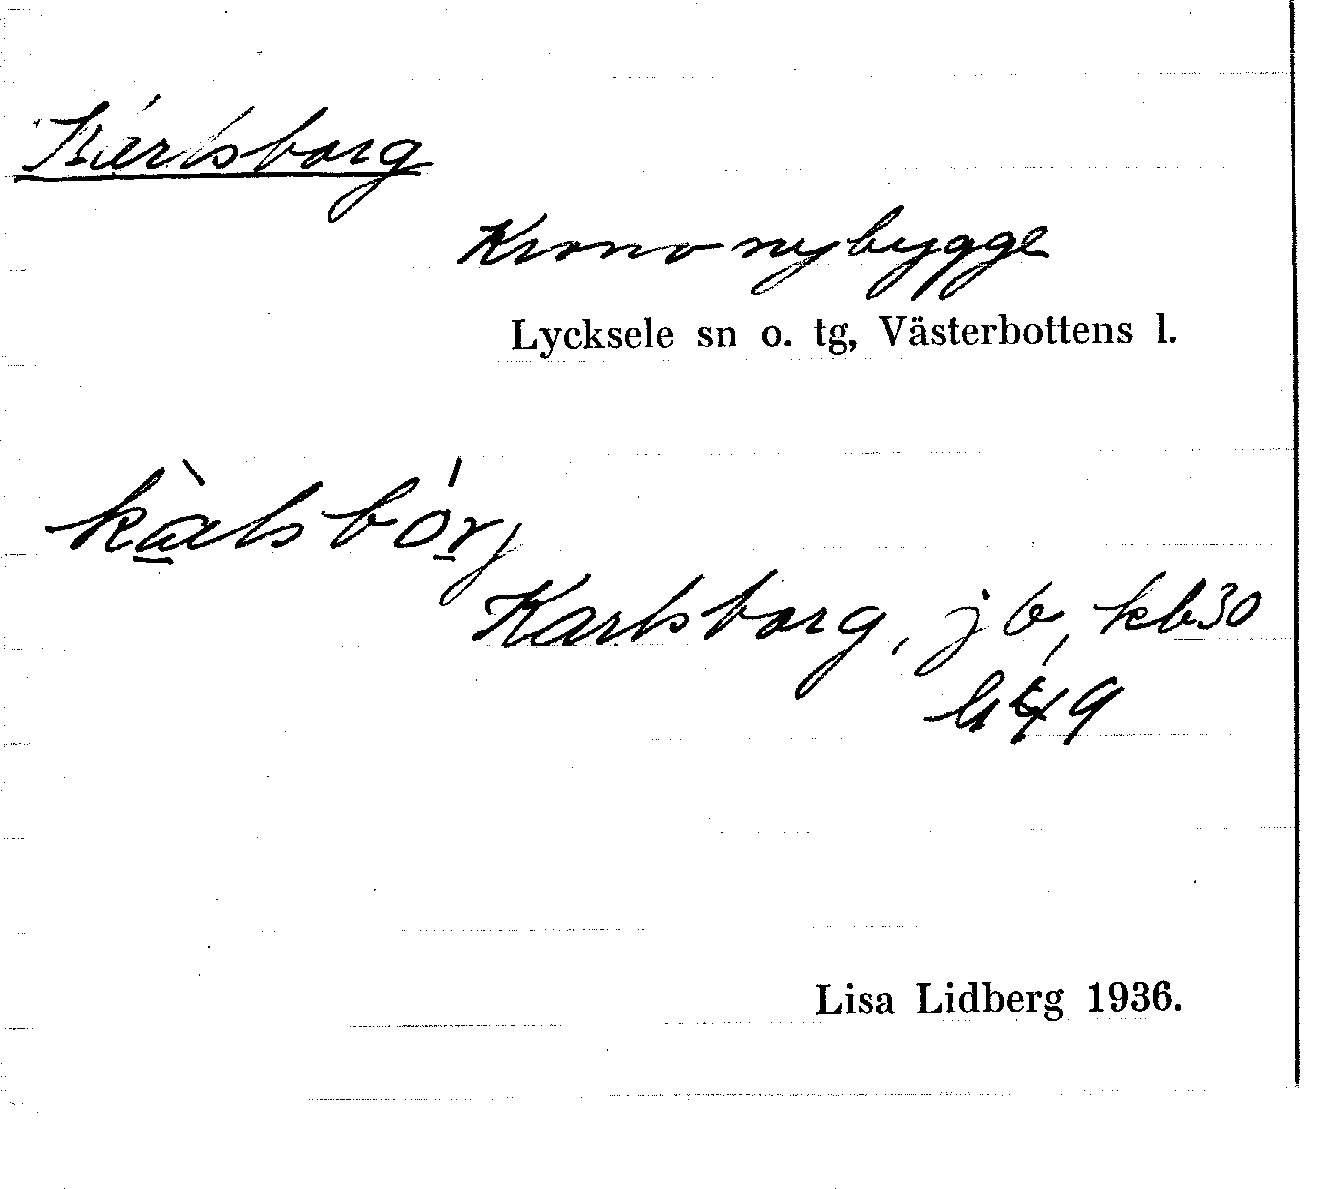 Karlsborg
Krononybygge
Lycksele sn o. tg, Västerbottens l.
kàlsbórj
Karlsborg, jb, kb 30
bl 49
Lisa Lidberg 1936.